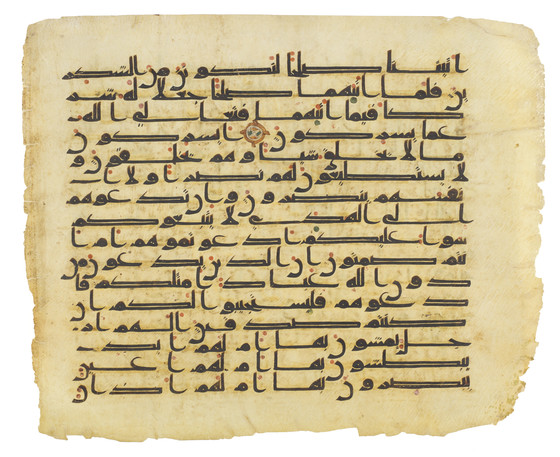 اتيتنا صلحا لنكونن من الشكر
ين فلما اتيهما صلحا جعلا له شر
كا فيما اتيهما فتعلى الله
عما يشركون ايشركون
ما لا يخلق شيا وهم يخلقون و
لا يستطيعون لهم نصرا ولا ا
نفسهم ينصرون وان تدعوهم
الى الهدى لا يتبعوكم
سوا عليكم ادعوتموهم ام ا
نتم صمتون ان الذين تدعون من
دون الله عباد امثالكم فا
دعوهم فليستجيبوا لكم ان
كنتم صدقين الهم ار
جل يمشون بها ام لهم ايد
يبطشون بها ام لهم اعين
يبصرون بها ام لهم اذان